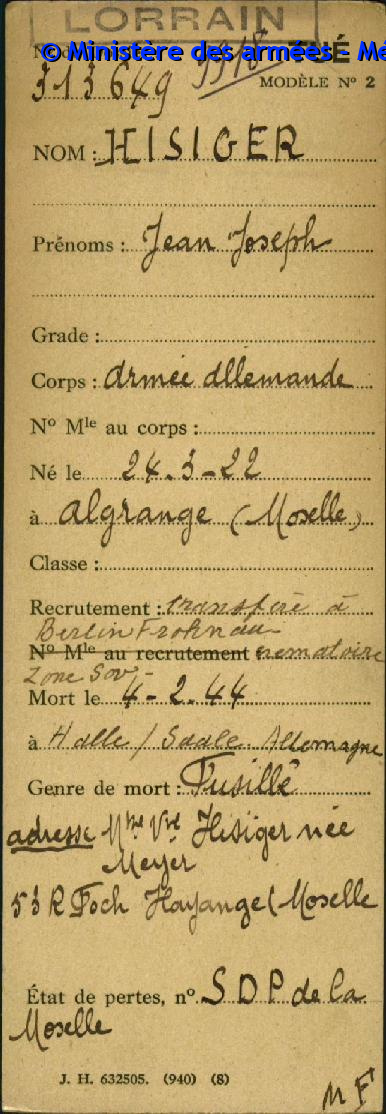 LORRAIN
© Ministère des armées - Mé
313649 3318
MODÈLE Nº 2
NOM : HISIGER
Prénoms : Jean Joseph
Grade :
Corps : Armée Allemande
Nº Mle au corps :
Né le 24.3-22
à Algrange (Moselle)
Classe :
Recrutement : transféré à
Berlin Frohnau
Nº Mle au recrutement crematoire
Zone Sov-
Mort le 4-2.44
à Halle / Saale Allemagne
Genre de mort : Fusillé
adresse Mme Vve Hisiger née
Meyer
53 R Foch Hayange (Moselle
État de pertes, nº. S D P de la
Moselle
J. H. 632505. (940) (8)